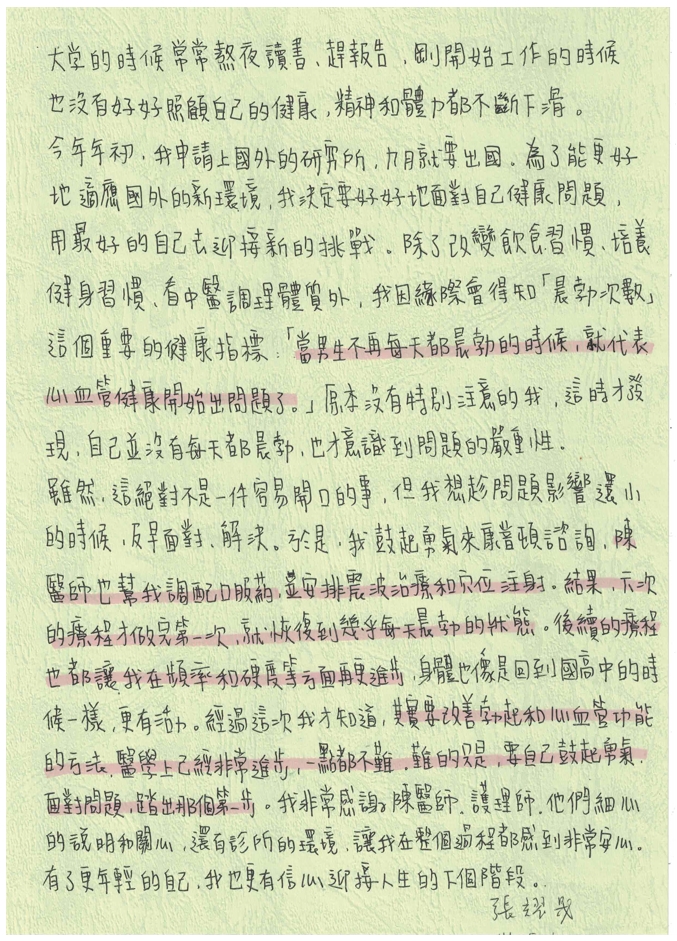 大学的時候常常熬夜讀書、趕報告，剛開始工作的時候
也沒有好好照顧自己的健康，精神和體力都不斷下滑。
今年年初，我申請上國外的研究所，九月就要出國。為了能更好
地適應國外的新環境，我決定要好好地面對自己健康問題，
用最好的自己去迎接新的挑戰。除了改變飲食習慣、培養
健身習慣、看中醫調理體質外，我因緣際會得知「晨勃次數」
這個重要的健康指標：「當男生不再每天都晨勃的時候，就代表
心血管健康開始出問題了。」原本沒有特別注意的我，這時才發
現，自己並沒有每天都晨勃，也才意識到問題的嚴重性。
雖然，這絕對不是一件容易開口的事，但我想趁問題影響還小
的時候，及早面對、解決。於是，我鼓起勇氣來康當頓諮詢，陳
醫師也幫我調配口服葯，並安排震波治療和穴位注射。結果，六次
的療程才做完第一次，就恢復到幾乎每天晨勃的狀態。後續的療程
也都讓我在頻率和硬度等方面再更進步，身體也像是回到國高中的時
候一樣，更有活力。經過這次我才知道，其實要改善勃起和心血管功能
的方法，醫學上已經非常進步，一點都不難，難的只是，要自己鼓起勇氣，
面對問題，踏出那個第一步。我非常感謝陳醫師、護理師，他們細心
的說明和關心，還有診所的環境，讓我在整個過程都感到非常安心。
有了更年輕的自己，我也更有信心迎接人生的下個階段。
張